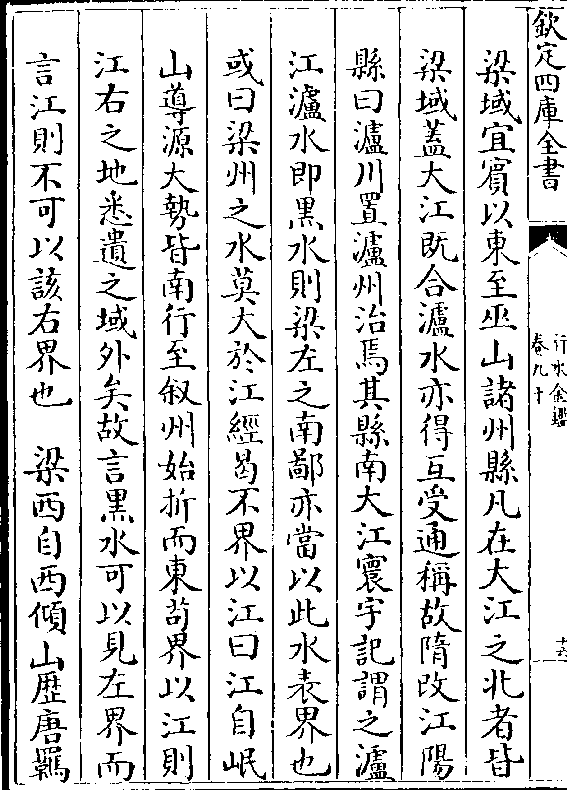 欽定四庫全書
行水金鑑
卷九十
十六
梁域宜賓以東至巫山諸州縣凡在大江之北者皆
梁域蓋大江既合瀘水亦得互受通稱故隋改江陽
縣曰瀘川置瀘州治焉其縣南大江寰宇記謂之瀘
江瀘水即黑水則梁左之南鄙亦當以此水表界也
或曰梁州之水莫大於江經曷不界以江曰江自岷
山導源大勢皆南行至敘州始折而東茍界以江則
江右之地悉遺之域外矣故言黑水可以見左界而
言江則不可以該右界也　梁西自西傾山歷唐羈